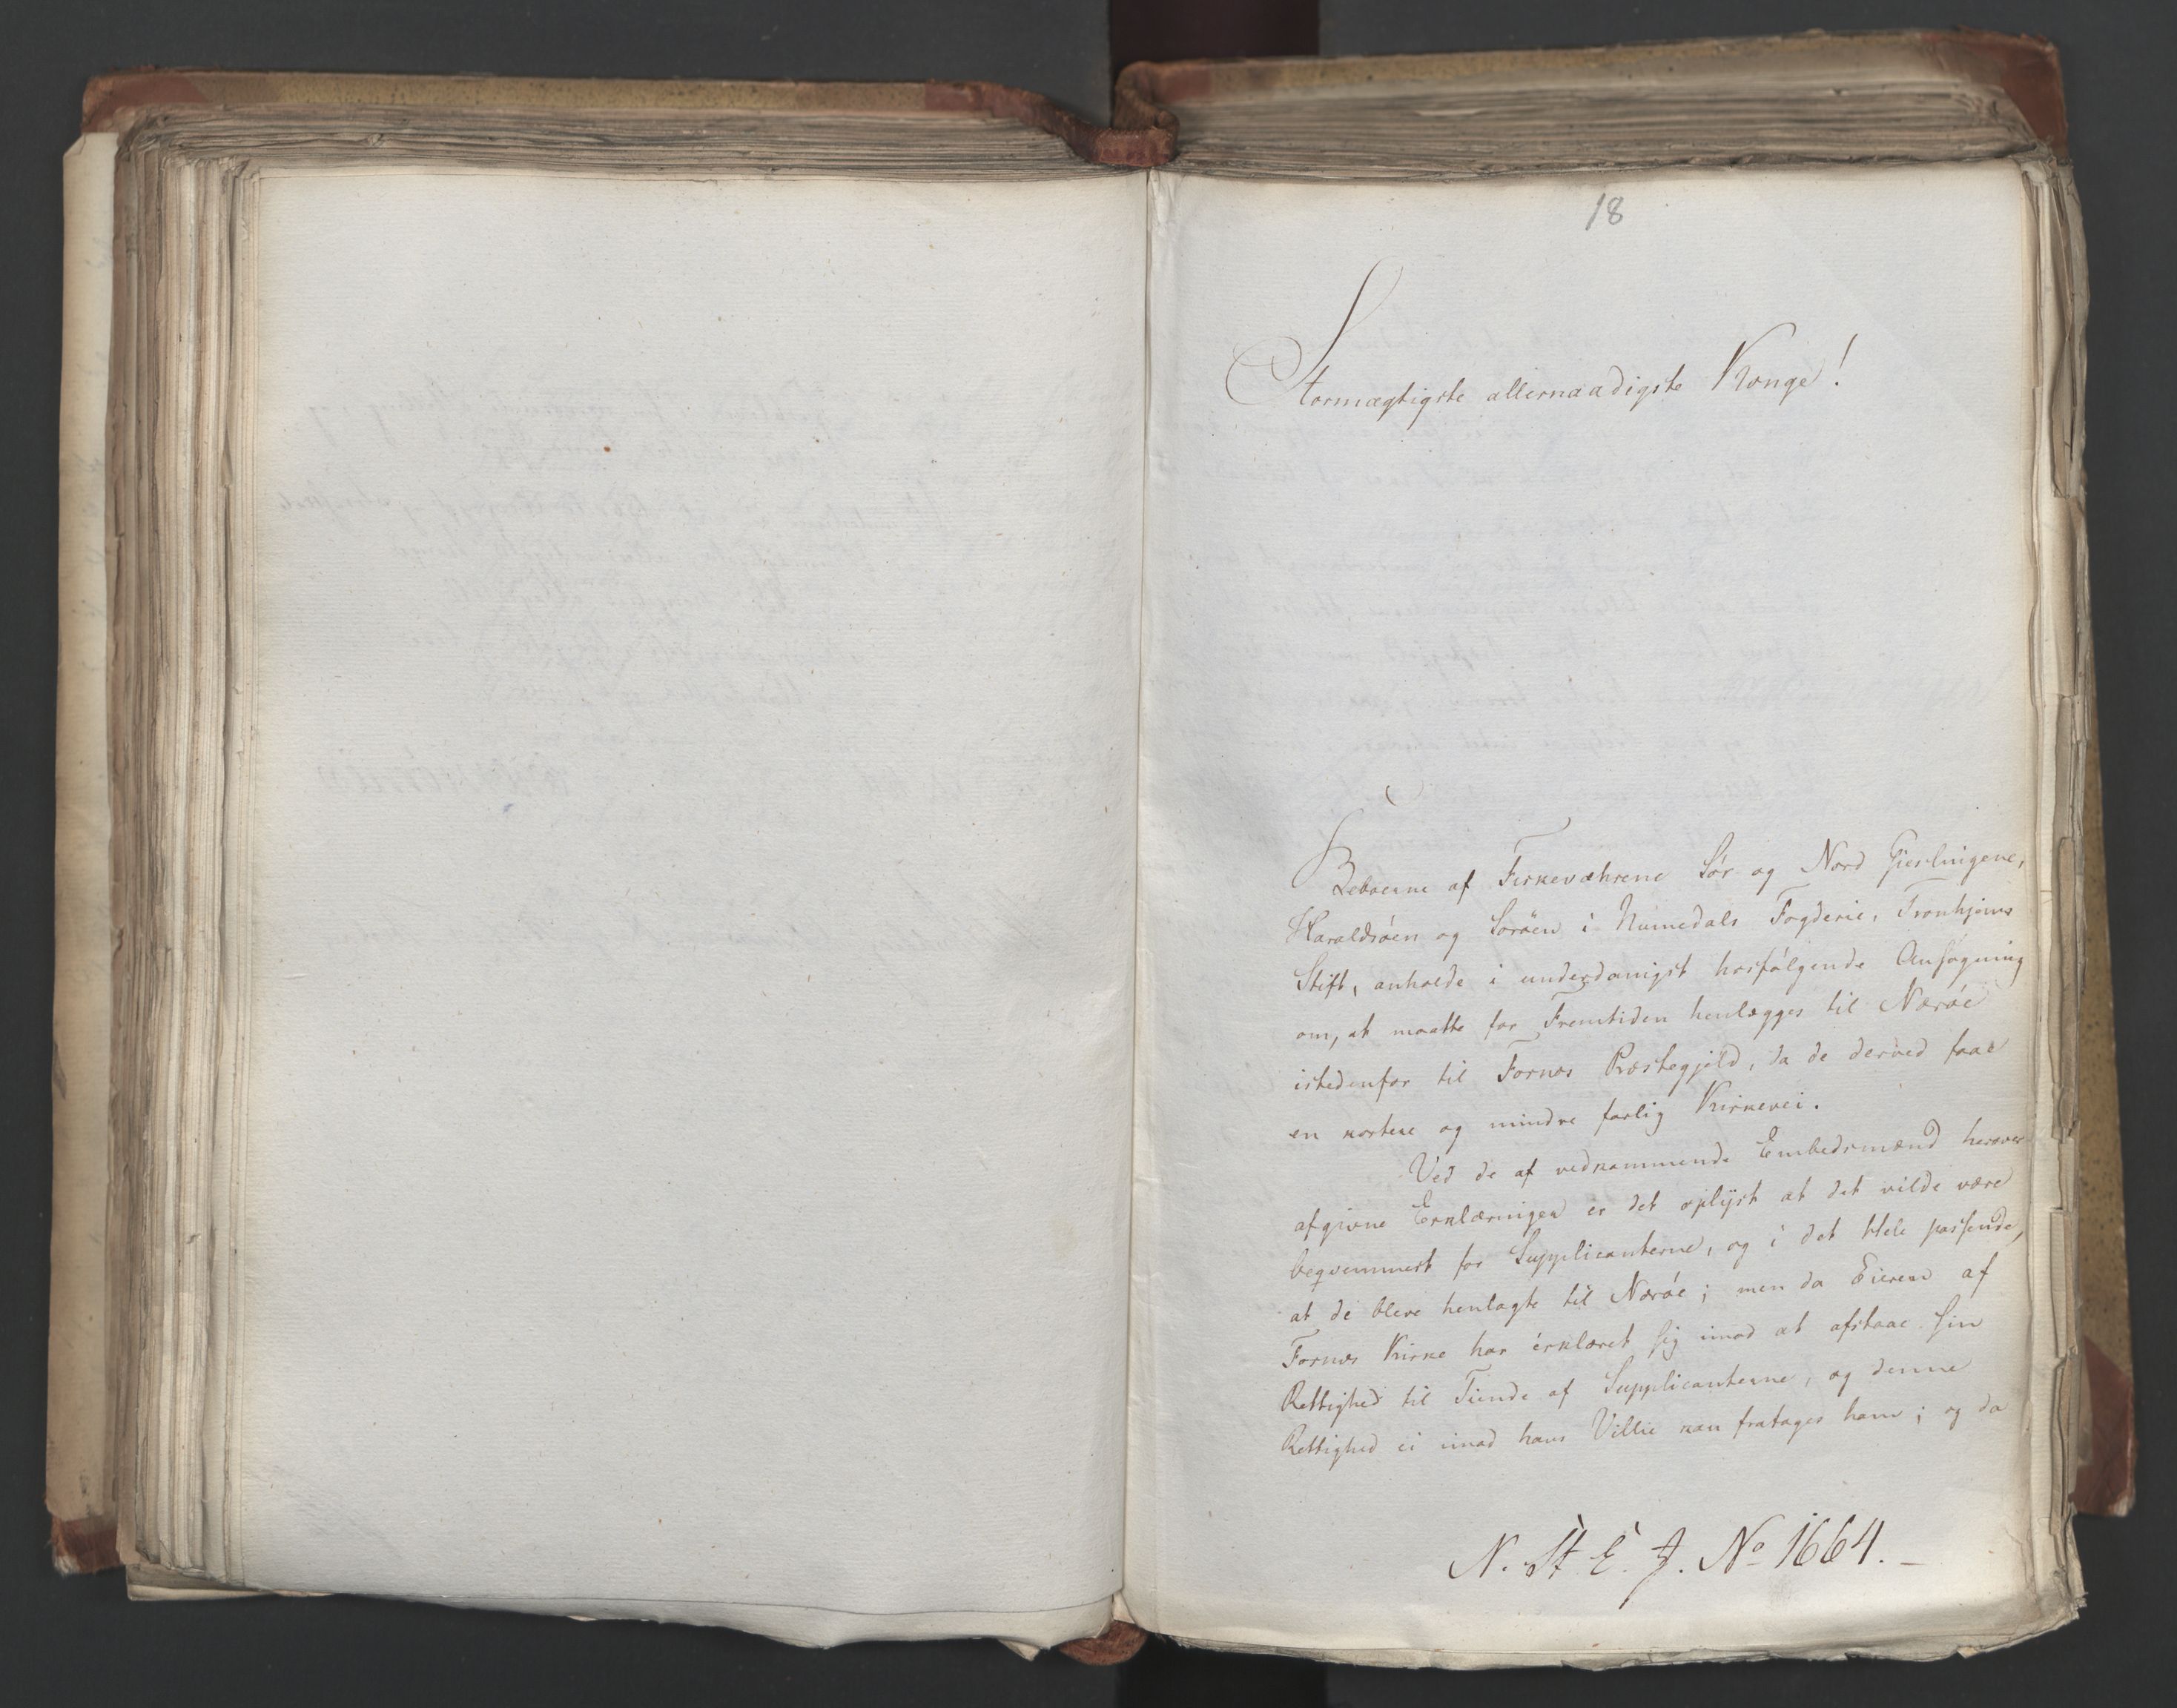 18
Stormægtigste allernaadigste Konge!
Beboerne af Fiskeværhrene Sör og Nord Gieslingene,
Haraldsöen og Soröen i Numedals Fogderie, Tronhjems
Stift, anholde i underdanigst hosfölgende Ansögning
om, at maatte for Fremtiden henlægges til Næröe
istedenfor til Fosnæs Præstegjeld, da de derved faae
en kortere og mindre farlig Kirkevei.
Ved de af vedkommende Embedsmænd herover
afgivne Erklæringer er det oplyst at det vilde være
beqvemmest for Supplicanterne, og i det Hele passende,
at de bleve henlagte til Næröe; men da Eieren af
Fosnæs Kirke har erklæret sig imod at afstaae sin
Rettighed til Tiende af Supplicanterne, og denne
Rettighed ei imod hans Villie kan fratages ham; og da
N. St E. J. No 1664.